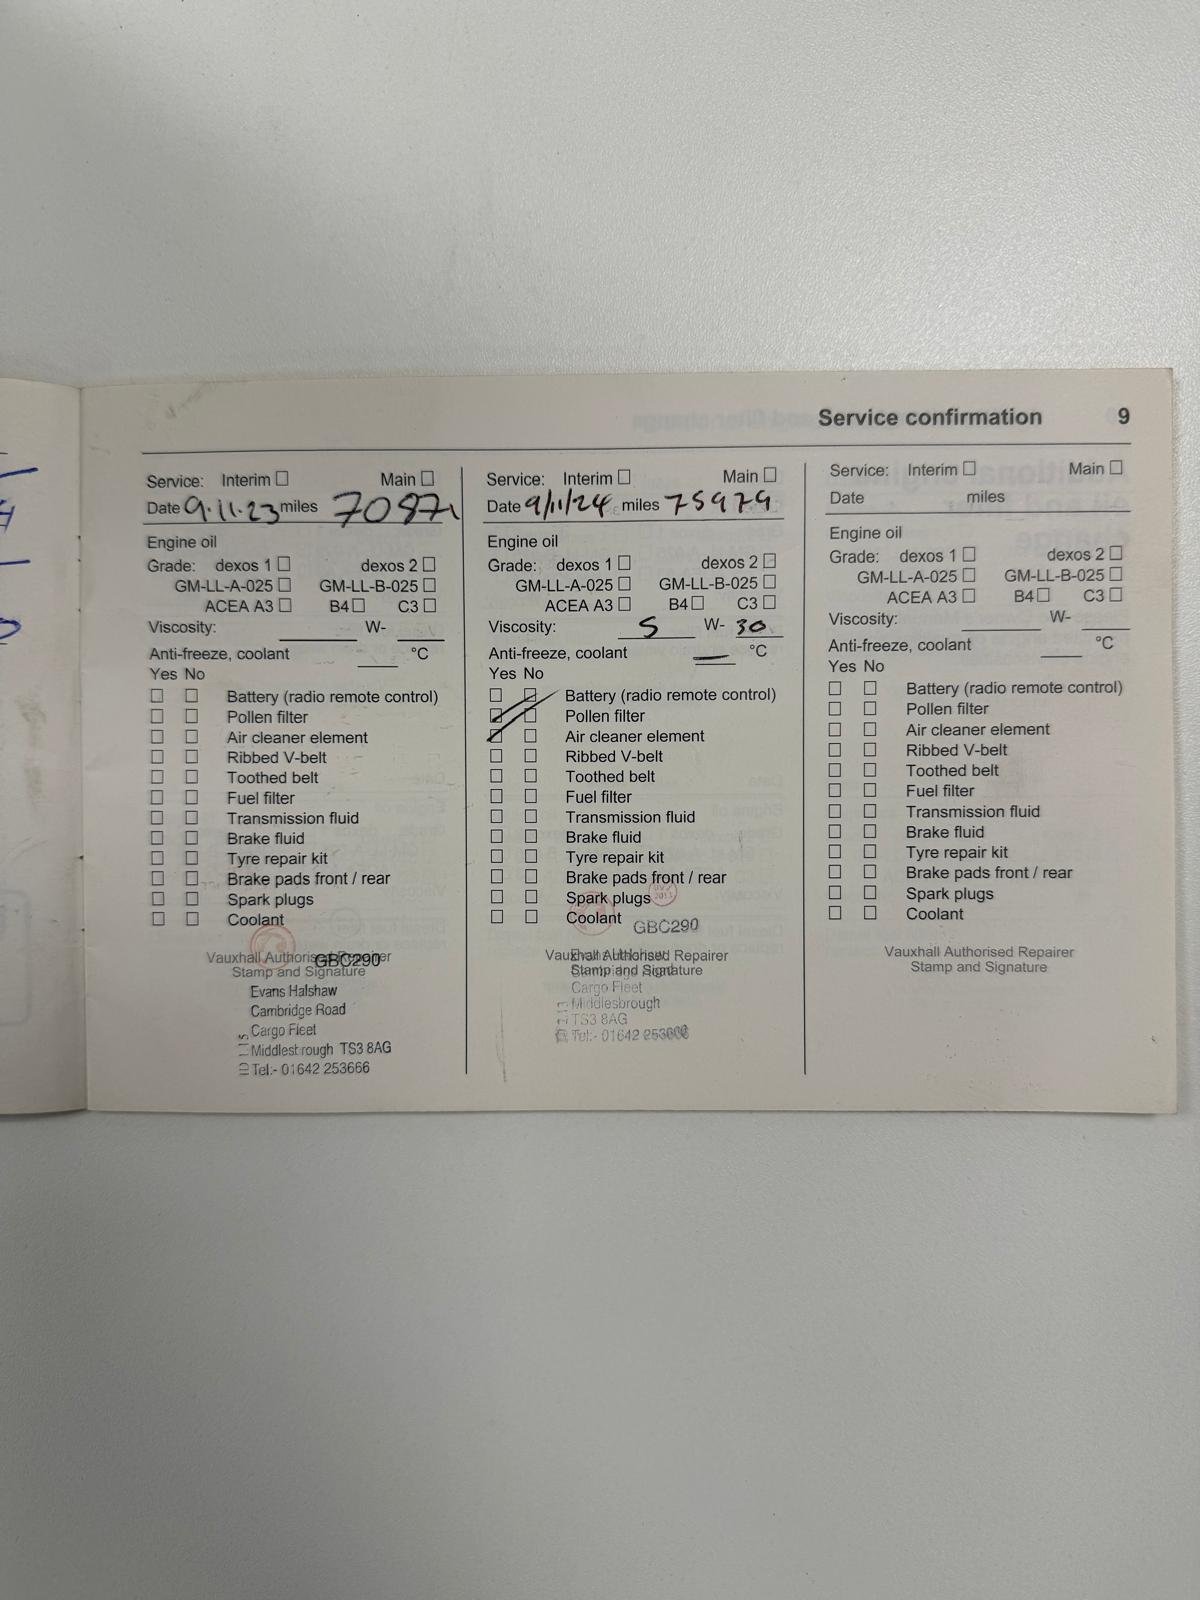 Service confirmation 9
Service: Interim Main
Date 9.11.23 miles 70871
Engine oil
Grade: dexos 1 dexos 2
GM-LL-A-025 GM-LL-B-025
ACEA A3 B4 C3
Viscosity: W-
Anti-freeze, coolant °C
Yes No
Battery (radio remote control)
Pollen filter
Air cleaner element
Ribbed V-belt
Toothed belt
Fuel filter
Transmission fluid
Brake fluid
Tyre repair kit
Brake pads front / rear
Spark plugs
Coolant
Vauxhall Authorised Repairer
GBC290
Stamp and Signature
Evans Halshaw
Cambridge Road
Cargo Fleet
Middlesbrough TS3 8AG
Tel:- 01642 253666
Service: Interim Main
Date 9/11/24 miles 75979
Engine oil
Grade: dexos 1 dexos 2
GM-LL-A-025 GM-LL-B-025
ACEA A3 B4 C3
Viscosity: 5 W- 30
Anti-freeze, coolant — °C
Yes No
Battery (radio remote control)
Pollen filter
Air cleaner element
Ribbed V-belt
Toothed belt
Fuel filter
Transmission fluid
Brake fluid
Tyre repair kit
Brake pads front / rear
Spark plugs
Coolant
GBC290
Vauxhall Authorised Repairer
Stamp and Signature
Cargo Fleet
Middlesbrough
TS3 8AG
Tel:- 01642 253666
Service: Interim Main
Date miles
Engine oil
Grade: dexos 1 dexos 2
GM-LL-A-025 GM-LL-B-025
ACEA A3 B4 C3
Viscosity: W-
Anti-freeze, coolant °C
Yes No
Battery (radio remote control)
Pollen filter
Air cleaner element
Ribbed V-belt
Toothed belt
Fuel filter
Transmission fluid
Brake fluid
Tyre repair kit
Brake pads front / rear
Spark plugs
Coolant
Vauxhall Authorised Repairer
Stamp and Signature